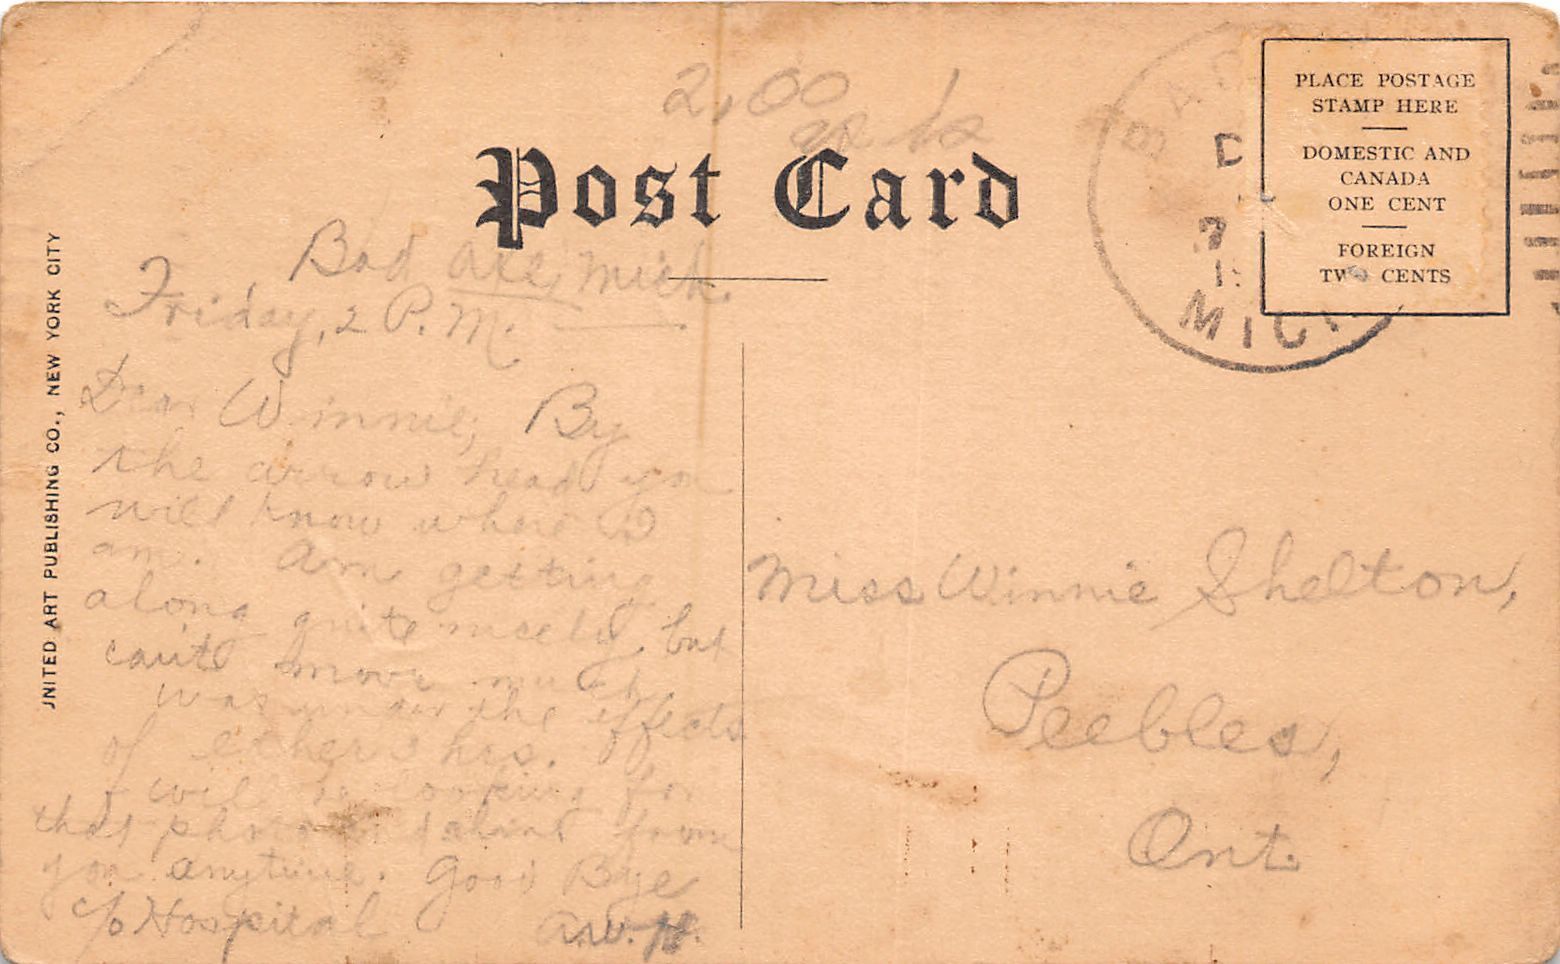 2.00
Post Card
BAD
D
MICH
PLACE POSTAGE
STAMP HERE
DOMESTIC AND
CANADA
ONE CENT
FOREIGN
TWO CENTS
UNITED ART PUBLISHING CO., NEW YORK CITY
Bad Axe, Mich.
Friday, 2 P.M.
Dear Winnie, By
the arrow head you
will know where I
am. Am getting
along quite nicely but
can't move much.
was under the effects
of ether 2 hrs.
I will be looking for
that photo from
you anytime. Good Bye
c/o Hospital A.W.H.
Miss Winnie Shelton,
Peebles,
Ont.